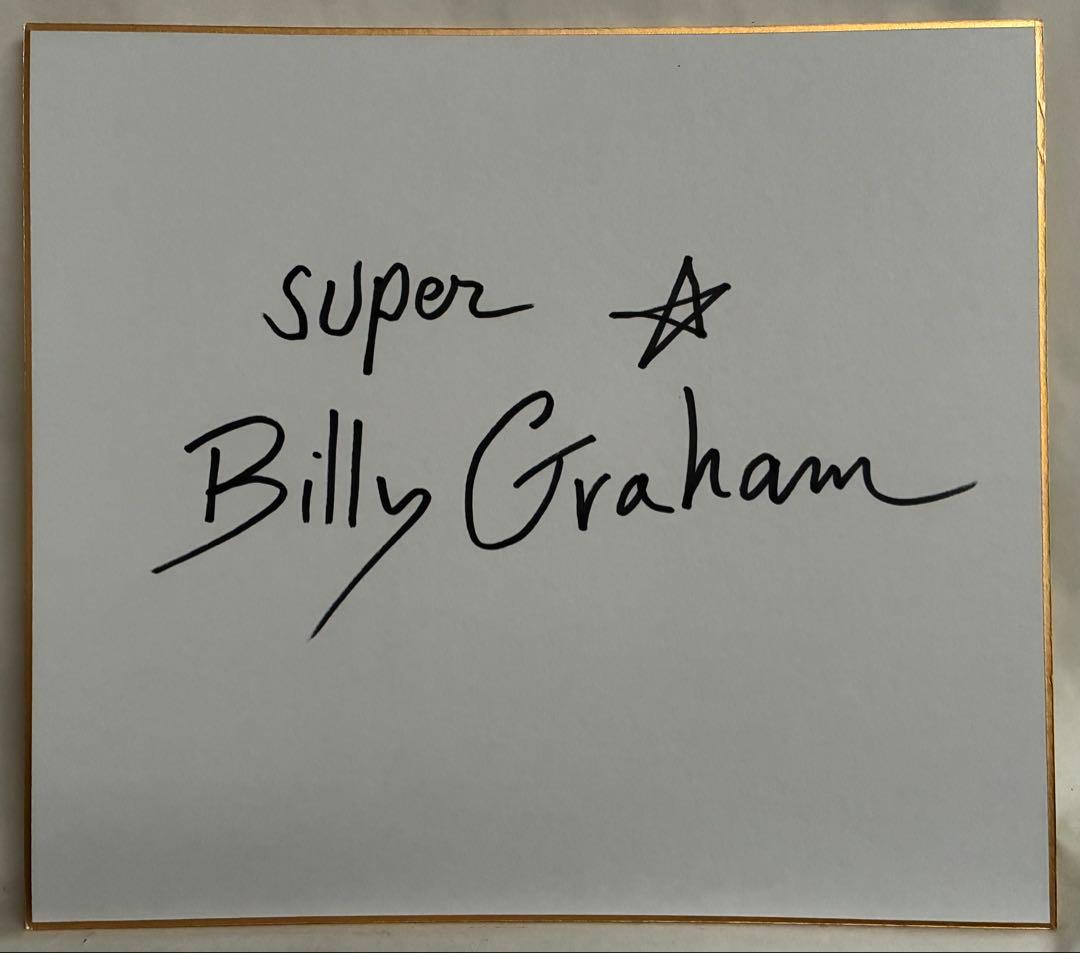 super ☆
Billy Graham